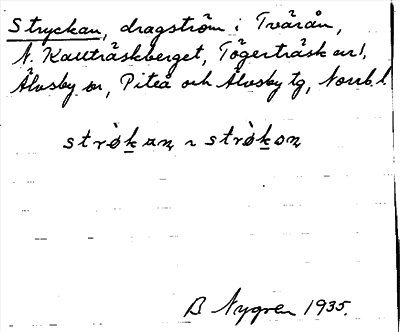 Stryckan, dragström i Tvärån,
N. Kallträskberget, Tögerträsk an!,
Älvsby sn, Piteå och Älvsby tg, Norrb. l
strø̀kan ~ strø̀kon
B Nygren 1935.